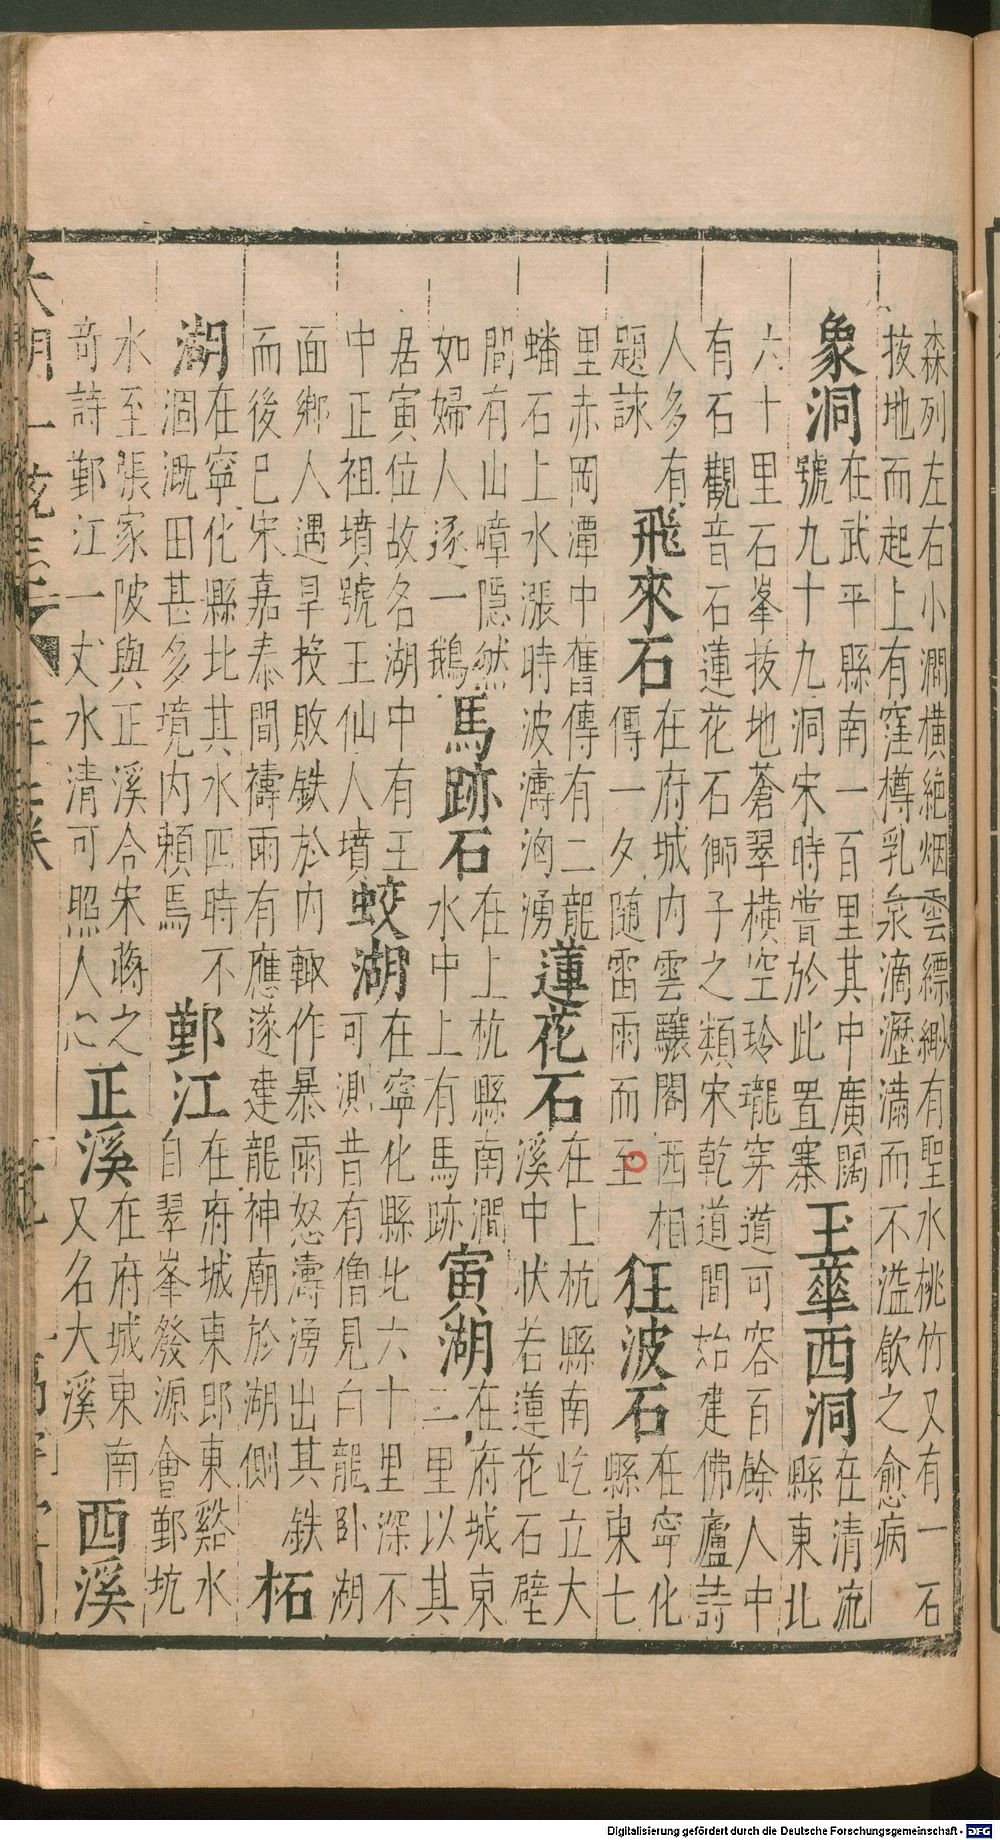 森列左右小澗橫絶烟雲縹緲有聖水桃竹又有一石
拔地而起上有窪樽乳泉滴瀝滿而不溢飲之愈病
象洞
在武平縣南一百里其中廣闊
號九十九洞宋時嘗於此置寨
玉華西洞
在清流
縣東北
六十里石峯拔地蒼翠橫空玲瓏穿道可容百餘人中
有石觀音石蓮花石獅子之類宋乾道間始建佛廬詩
人多有
題詠
飛來石
在府城内雲驤閣西相
傳一夕随雷雨而至
狂波石
在寧化
縣東七
里赤岡潭中舊傳有二龍
蟠石上水漲時波濤洶湧
蓮花石
在上杭縣南屹立大
溪中狀若蓮花石壁
間有山嶂隱然
如婦人逐一鵝
馬跡石
在上杭縣南澗
水中上有馬跡
寅湖
在府城東
二里以其
居寅位故名湖中有王
中正祖墳號王仙人墳
蛟湖
在寧化縣北六十里深不
可測昔有僧見白龍卧湖
面鄉人遇旱投敗鉄於内輙作暴雨怒濤湧出其鉄
而後已宋嘉泰間禱雨有應遂建龍神廟於湖側
柘
湖
在寧化縣北其水四時不
涸溉田甚多境内頼焉
鄞江
在府城東郎東谿水
自翠峯發源會鄞坑
水至張家陂與正溪合宋蔣之
竒詩鄞江一丈水清可照人心
正溪
在府城東南
又名大溪
西溪
Digitalisierung gefördert durch die Deutsche Forschungsgemeinschaft - DFG